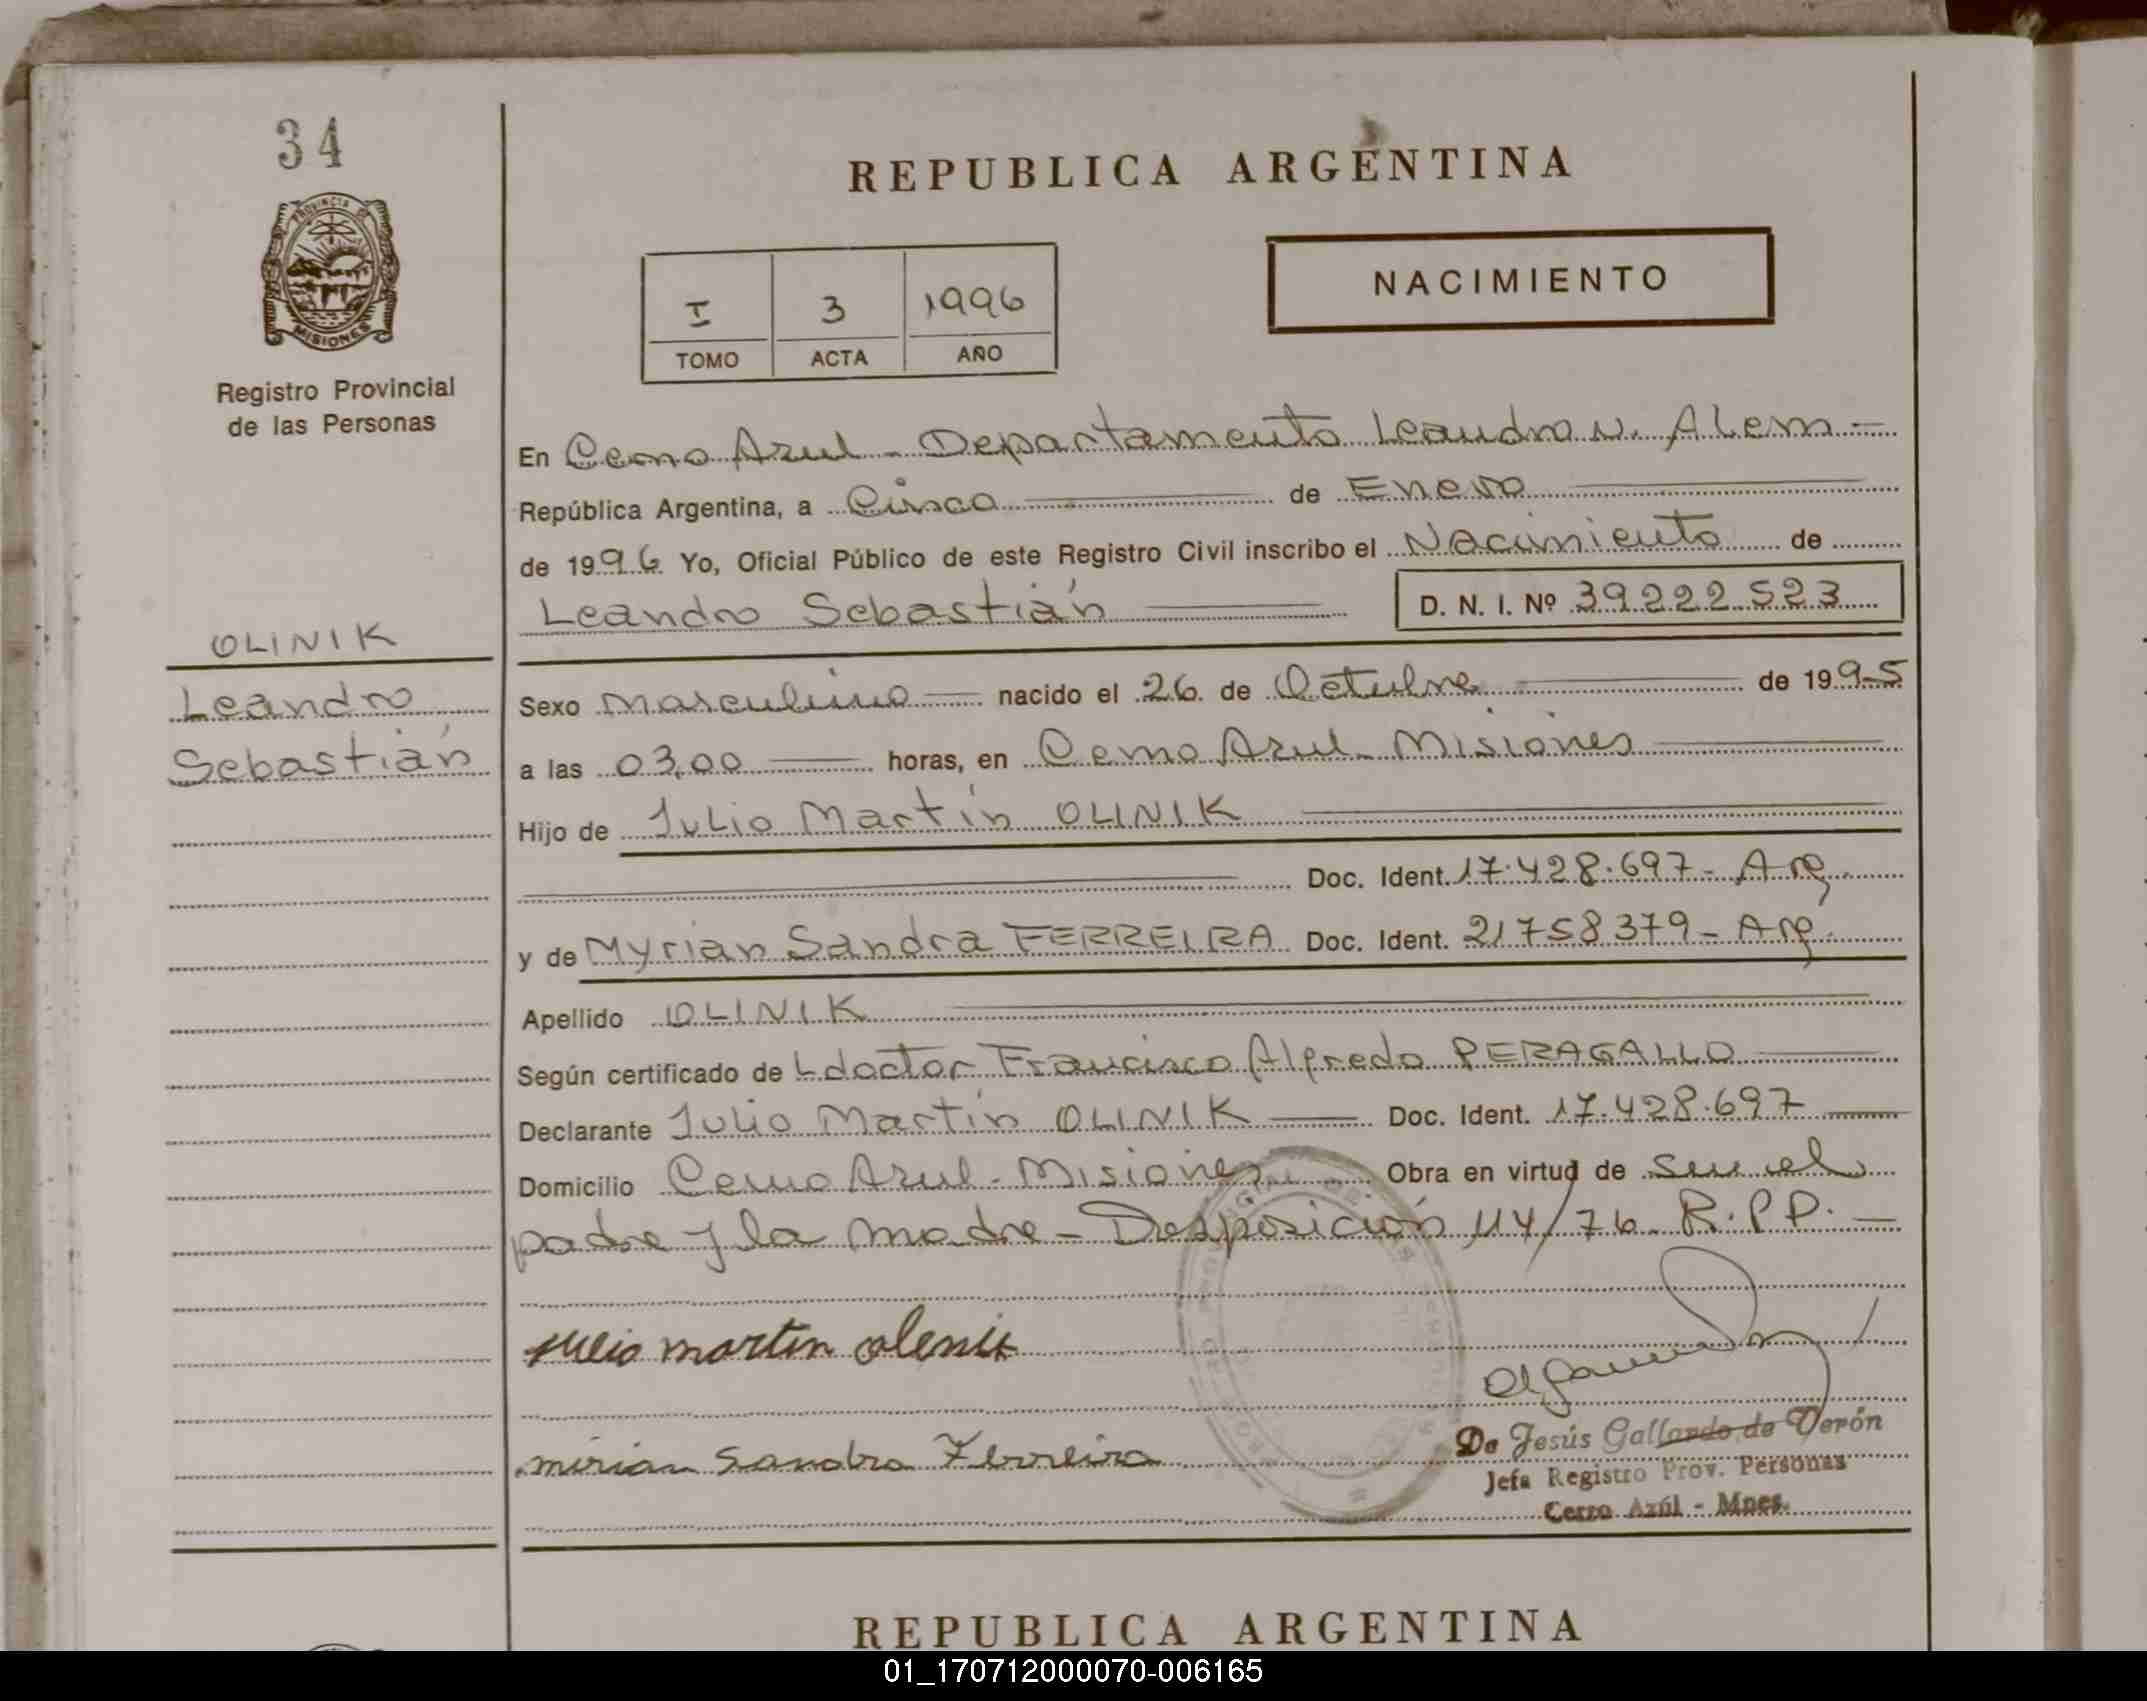 34
REPUBLICA ARGENTINA
PROVINCIA DE
MISIONES
Registro Provincial
de las Personas
I 3 1996
TOMO ACTA AÑO
NACIMIENTO
En Cerro Azul - Departamento Leandro N. Alem -
República Argentina, a Cinco de Enero
de 1996 Yo, Oficial Público de este Registro Civil inscribo el Nacimiento de
Leandro Sebastián D. N. I. Nº 39222523
OLINIK
Leandro
Sebastián
Sexo Masculino nacido el 26 de Octubre de 1995
a las 03,00 horas, en Cerro Azul - Misiones
Hijo de Julio Martín OLINIK
Doc. Ident. 17.428.697 - Arg.
y de Myrian Sandra FERREIRA Doc. Ident. 21758379 - Arg.
Apellido OLINIK
Según certificado de L doctor Francisco Alfredo PERAGALLO
Declarante Julio Martín OLINIK Doc. Ident. 17.428.697
Domicilio Cerro Azul - Misiones Obra en virtud de ser el
padre y la madre - Disposición 114/76 R.P.P. -
julio martin olenik
mirian Sandra Ferreira
De Jesús Gallardo de Verón
Jefa Registro Prov. Personas
Cerro Azúl - Mnes.
REPUBLICA ARGENTINA
01_170712000070-006165